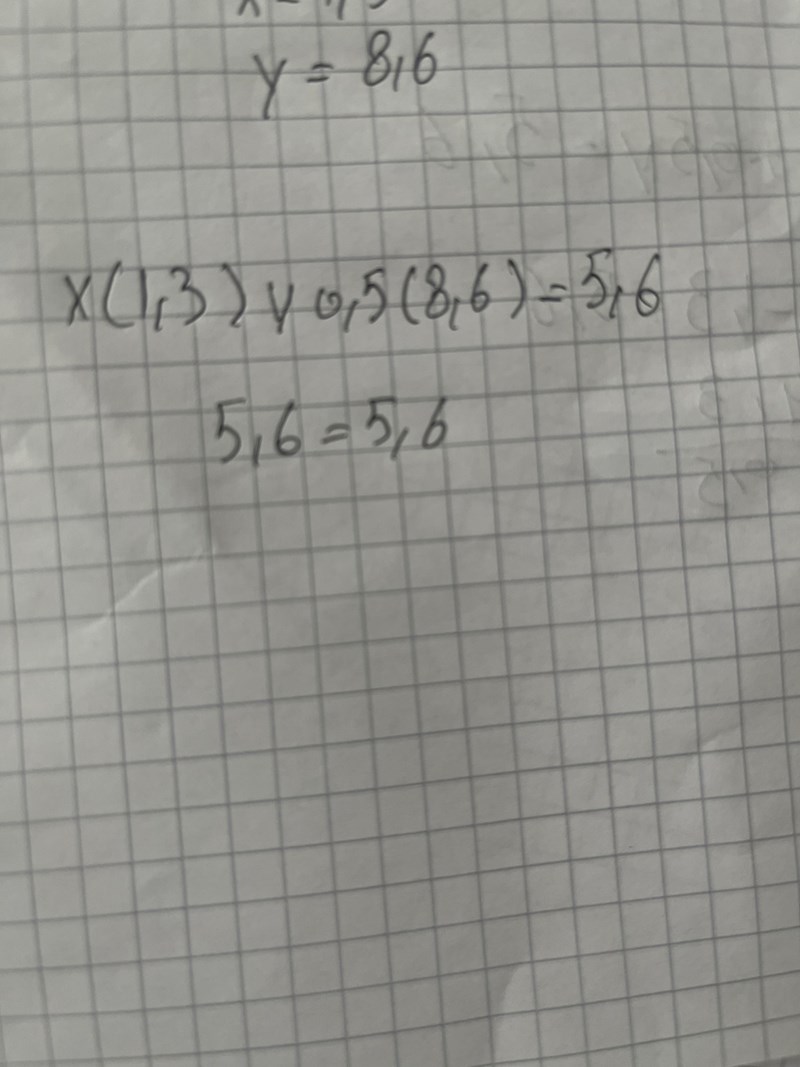 y = 8,6
x(1,3) y 0,5(8,6) = 5,6
5,6 = 5,6